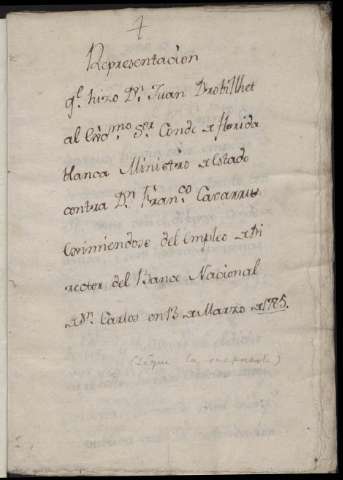 4
Representacion
q.e hizo D.n Juan Drobilhet
al Ex.mo S.or Conde de florida
blanca Ministro de Estado
contra D.n Fran.co Cavarrus
eximiendose del Empleo de Di
rector del Banco Nacional
de S.n Carlos en 13 de Marzo de 1785.
(Sigue la